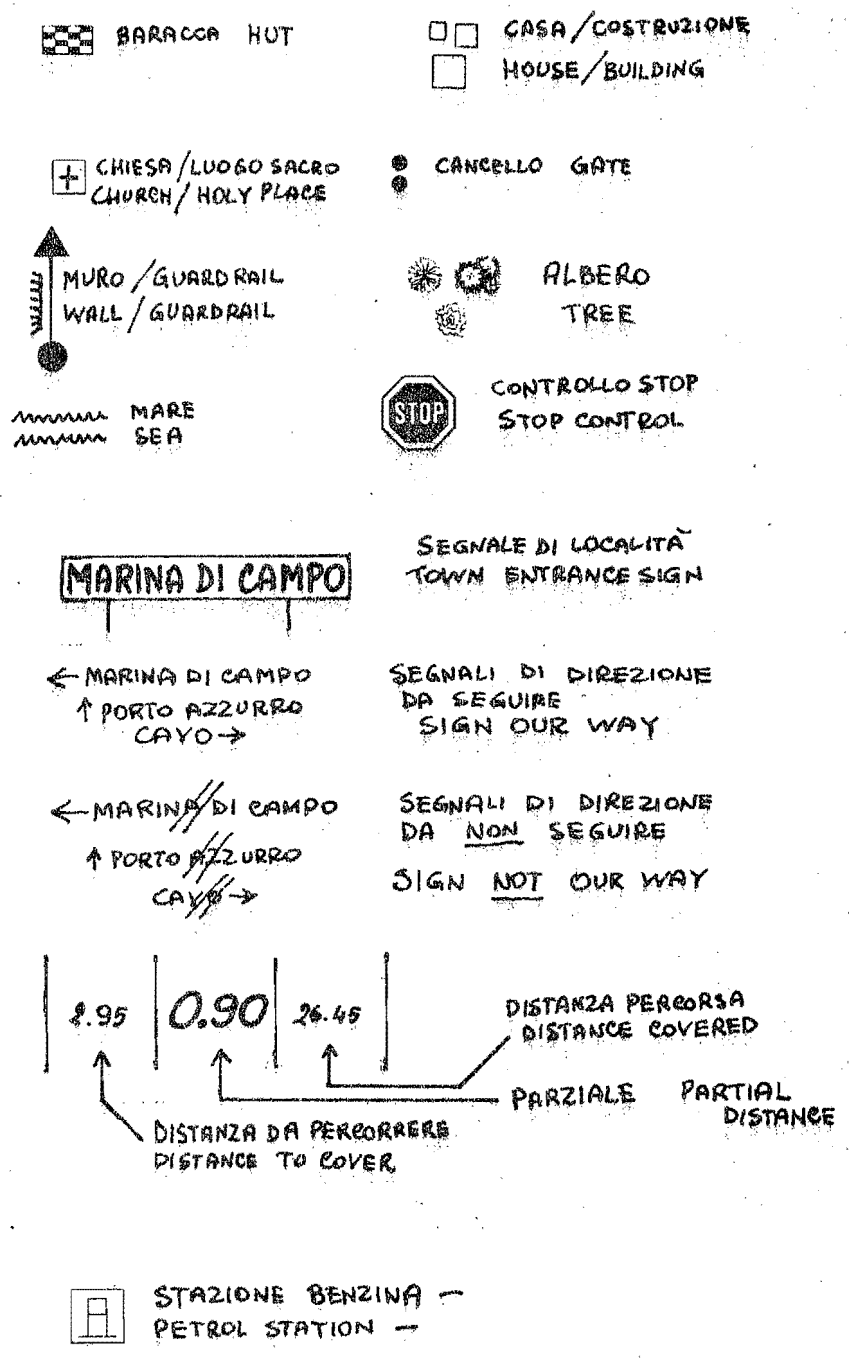 BARACCA HUT
CASA/COSTRUZIONE
HOUSE/BUILDING
CHIESA/LUOGO SACRO
CHURCH/HOLY PLACE
CANCELLO GATE
MURO/GUARDRAIL
WALL/GUARDRAIL
ALBERO
TREE
MARE
SEA
STOP
CONTROLLO STOP
STOP CONTROL
MARINA DI CAMPO
SEGNALE DI LOCALITÀ
TOWN ENTRANCE SIGN
← MARINA DI CAMPO
↑ PORTO AZZURRO
CAVO →
SEGNALI DI DIREZIONE
DA SEGUIRE
SIGN OUR WAY
← MARINA DI CAMPO
↑ PORTO AZZURRO
CAVO →
SEGNALI DI DIREZIONE
DA NON SEGUIRE
SIGN NOT OUR WAY
8.95 0.90 26.45
DISTANZA PERCORSA
DISTANCE COVERED
PARZIALE PARTIAL
DISTANCE
DISTANZA DA PERCORRERE
DISTANCE TO COVER
STAZIONE BENZINA -
PETROL STATION -